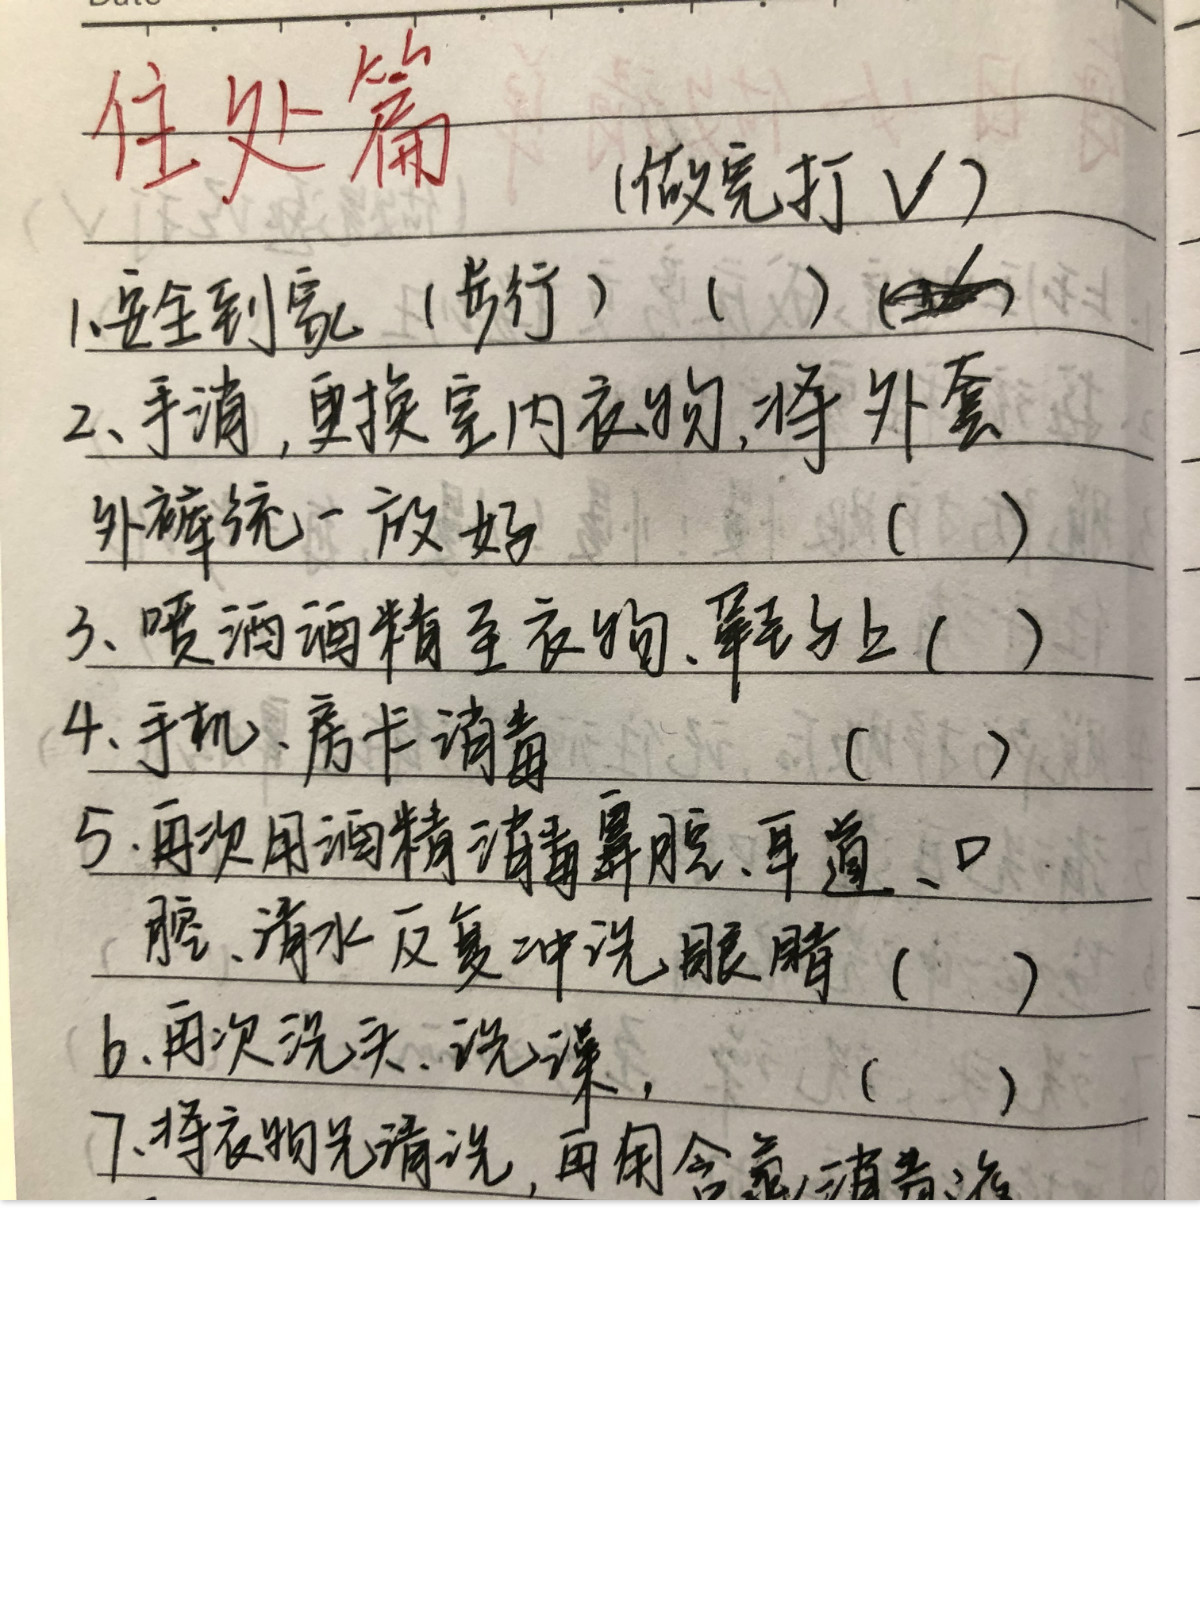 住处篇
(做完打√)
1.安全到家(步行)( )
2、手消,更换室内衣物,将外套
外裤统一放好 ( )
3、喷洒酒精至衣物、鞋子上( )
4、手机、房卡消毒 ( )
5.再次用酒精消毒鼻腔、耳道、口
腔、清水反复冲洗眼睛( )
6.再次洗头、洗澡, ( )
7.将衣物先清洗,再用含氯消毒液